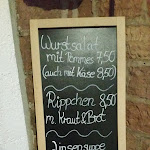 Wurstsalat
mit Pommes 7,50
(auch mit Käse 8,50)
Rippchen 8,50
m. Kraut & Brot
Linsensuppe